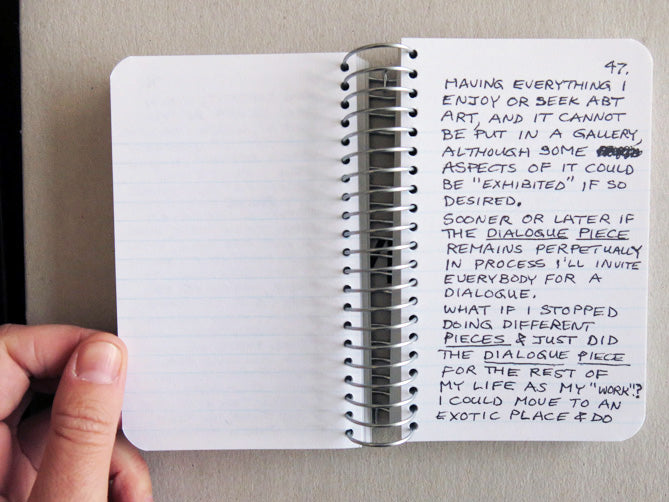 47.
HAVING EVERYTHING I
ENJOY OR SEEK ABT
ART, AND IT CANNOT
BE PUT IN A GALLERY,
ALTHOUGH SOME
ASPECTS OF IT COULD
BE "EXHIBITED" IF SO
DESIRED.
SOONER OR LATER IF
THE DIALOGUE PIECE
REMAINS PERPETUALLY
IN PROCESS I'LL INVITE
EVERYBODY FOR A
DIALOGUE.
WHAT IF I STOPPED
DOING DIFFERENT
PIECES & JUST DID
THE DIALOGUE PIECE
FOR THE REST OF
MY LIFE AS MY "WORK"?
I COULD MOVE TO AN
EXOTIC PLACE & DO